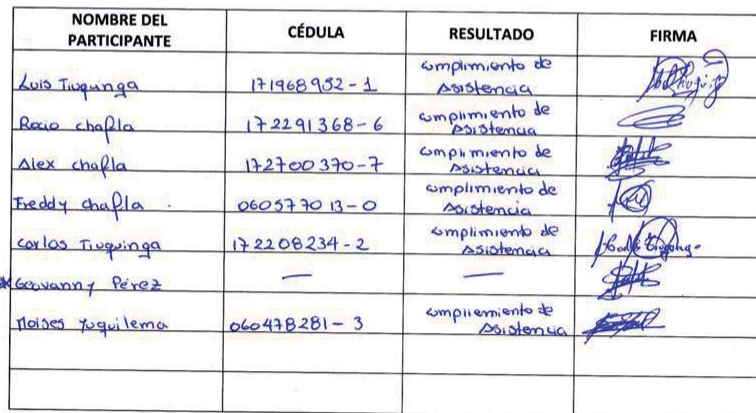 NOMBRE DEL PARTICIPANTE CÉDULA RESULTADO FIRMA
Luis Tiuquinga 171968952-1 cumplimiento de Asistencia
Rocio chafla 172291368-6 cumplimiento de Asistencia
Alex chafla 172700370-7 cumplimiento de Asistencia
Freddy chafla 060577013-0 cumplimiento de Asistencia
Carlos Tiuquinga 172208234-2 cumplimiento de Asistencia
*Geovanny Pérez — —
Moises Yuquilema 060478281-3 cumpliemiento de Asistencia